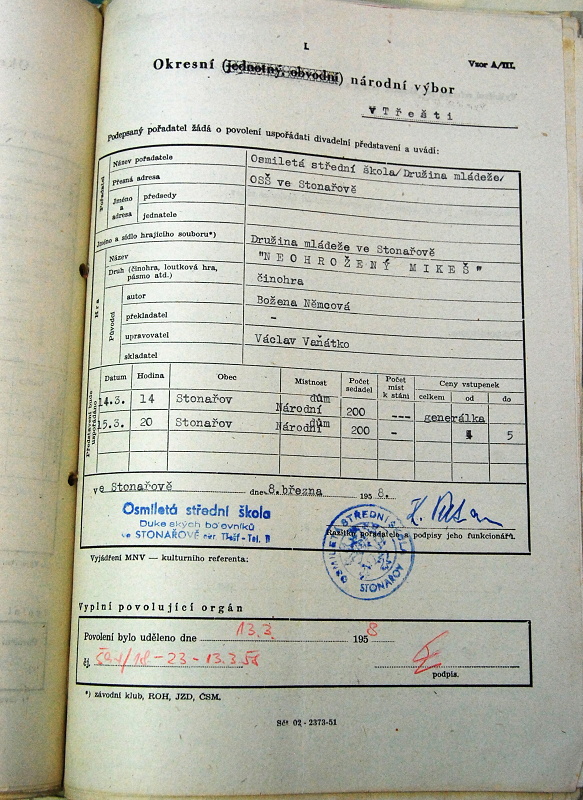 I.
Vzor A/III.
Okresní (jednotný, obvodní) národní výbor
v Třešti
Podepsaný pořadatel žádá o povolení uspořádati divadelní představení a uvádí:
Pořadatel
Název pořadatele Osmiletá střední škola/Družina mládeže/
Přesná adresa OSŠ ve Stonařově
Jméno a adresa
předsedy
jednatele
Jméno a sídlo hrajícího souboru*) Družina mládeže ve Stonařově
Hra
Název "NEOHROŽENÝ MIKEŠ"
Druh (činohra, loutková hra, pásmo atd.) činohra
Původci
autor Božena Němcová
překladatel -
upravovatel Václav Vaňátko
skladatel
Představení bude uspořádáno
Datum Hodina Obec Místnost Počet sedadel Počet míst k stání Ceny vstupenek
celkem od do
14.3. 14 Stonařov Národní dům 200 --- generálka
15.3. 20 Stonařov Národní dům 200 - 4 5
ve Stonařově dne 8. března 1958.
Osmiletá střední škola
Dukelských bojovníků
ve STONAŘOVĚ okr. Třešť - Tel. 11
OSMILETÁ STŘEDNÍ ŠKOLA
STONAŘOV
Razítko pořadatele a podpisy jeho funkcionářů.
Vyjádření MNV — kulturního referenta:
Vyplní povolující orgán
Povolení bylo uděleno dne 13.3. 1958
čj.
18-23-13.3.58
podpis.
*) závodní klub, ROH, JZD, ČSM.
Sčt 02 - 2373-51